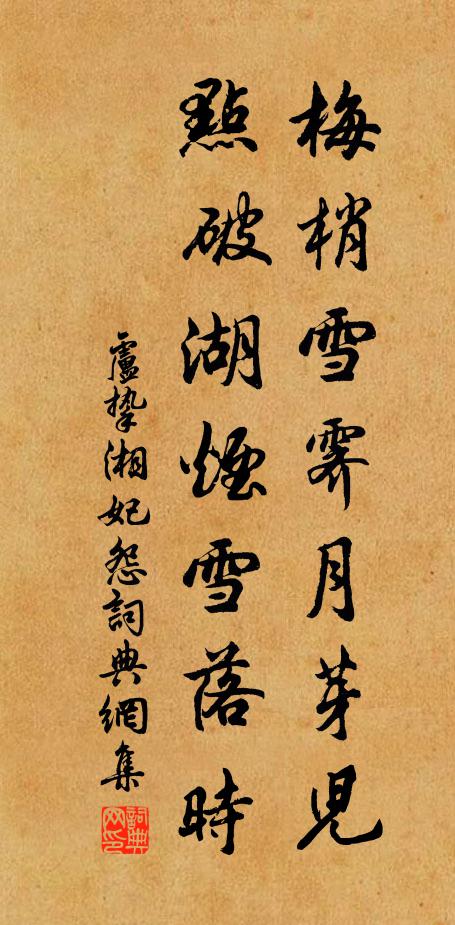 梅梢雪霽月芽兒
點破湖煙雪落時
盧摯湘妃怨詞典網集
詞典网印